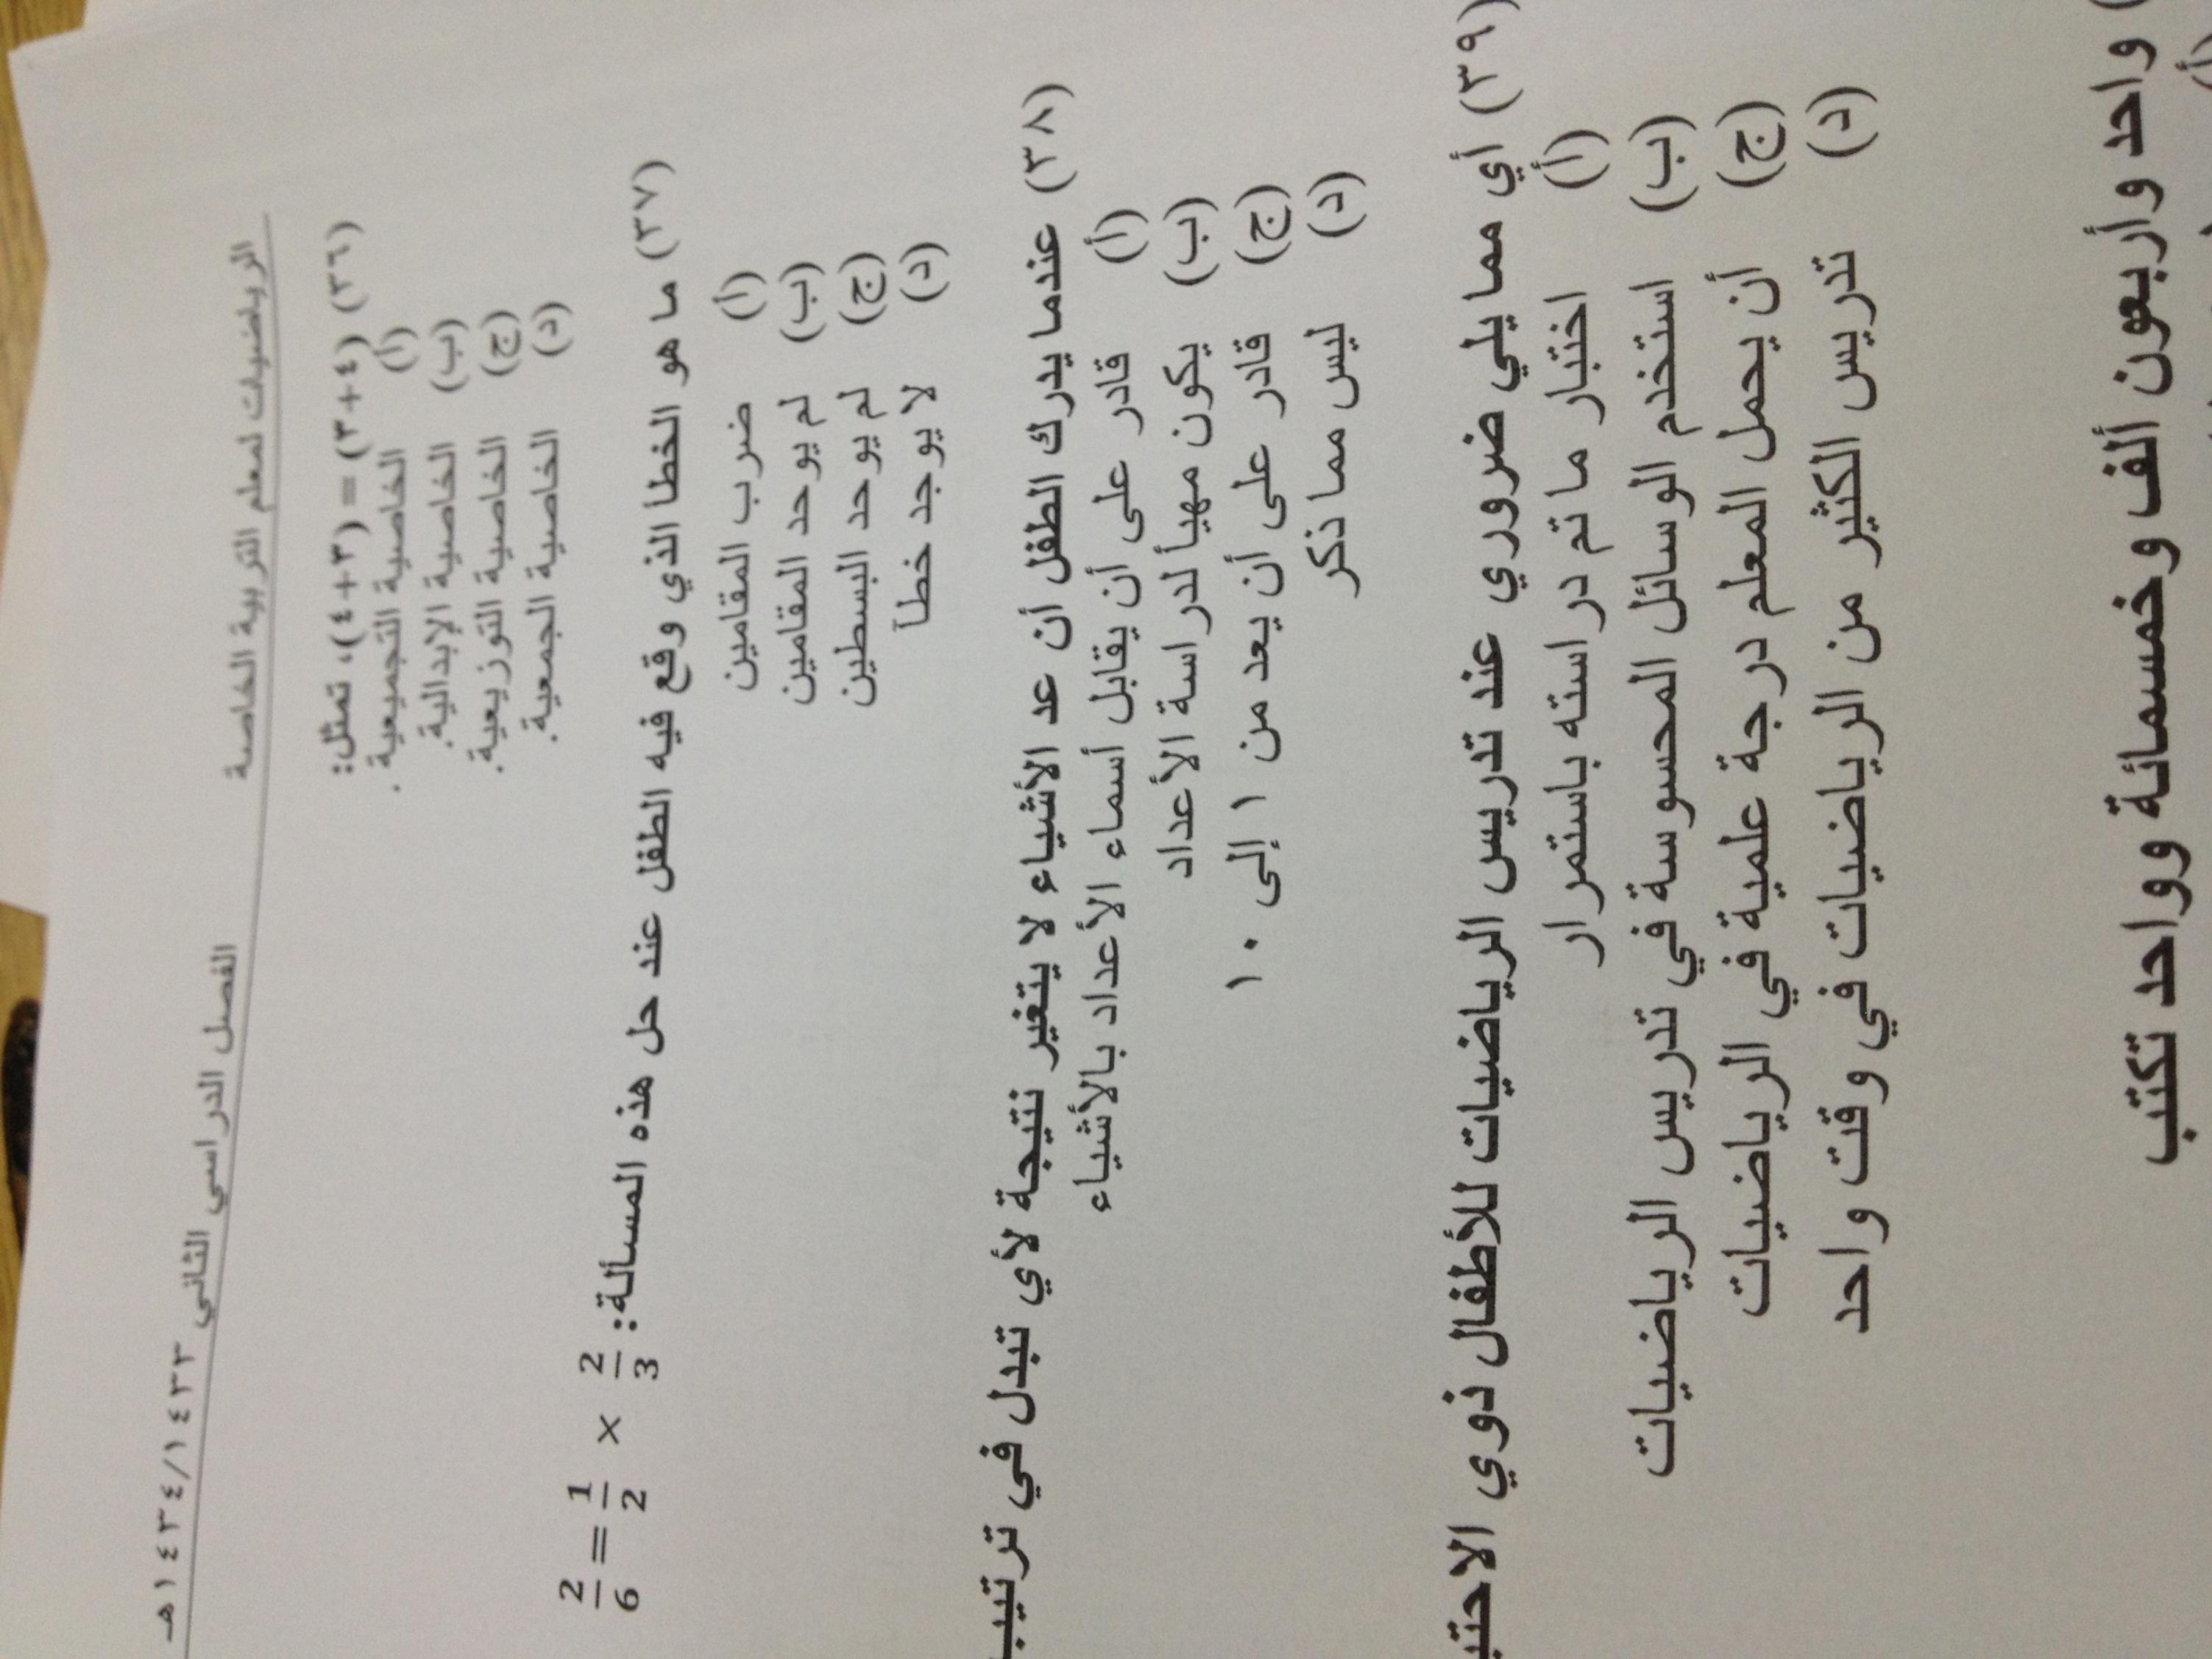 الرياضيات لمعلم التربية الخاصة الفصل الدراسي الثاني ١٤٣٤/١٤٣٣هـ
(٣٦) (٤+٣) = (٣+٤)، تمثل:
(أ) الخاصية التجميعية.
(ب) الخاصية الإبدالية.
(ج) الخاصية التوزيعية.
(د) الخاصية الجمعية.
(٣٧) ما هو الخطا الذي وقع فيه الطفل عند حل هذه المسألة: 2/6 = 1/2 × 2/3
(أ) ضرب المقامين
(ب) لم يوحد المقامين
(ج) لم يوحد البسطين
(د) لا يوجد خطآ
(٣٨) عندما يدرك الطفل أن عد الأشياء لا يتغير نتيجة لأي تبدل في
(أ) قادر على أن يقابل أسماء الأعداد بالأشياء
(ب) يكون مهيأ لدراسة الأعداد
(ج) قادر على أن يعد من ١ إلى ١٠
(د) ليس مما ذكر
(٣٩) أي مما يلي ضروري عند تدريس الرياضيات للأطفال ذوي
(أ) اختبار ما تم دراسته باستمرار
(ب) استخدم الوسائل المحسوسة في تدريس الرياضيات
(ج) أن يحمل المعلم درجة علمية في الرياضيات
(د) تدريس الكثير من الرياضيات في وقت واحد
واحد وأربعون ألف وخمسمائة وواحد تكتب
(أ)